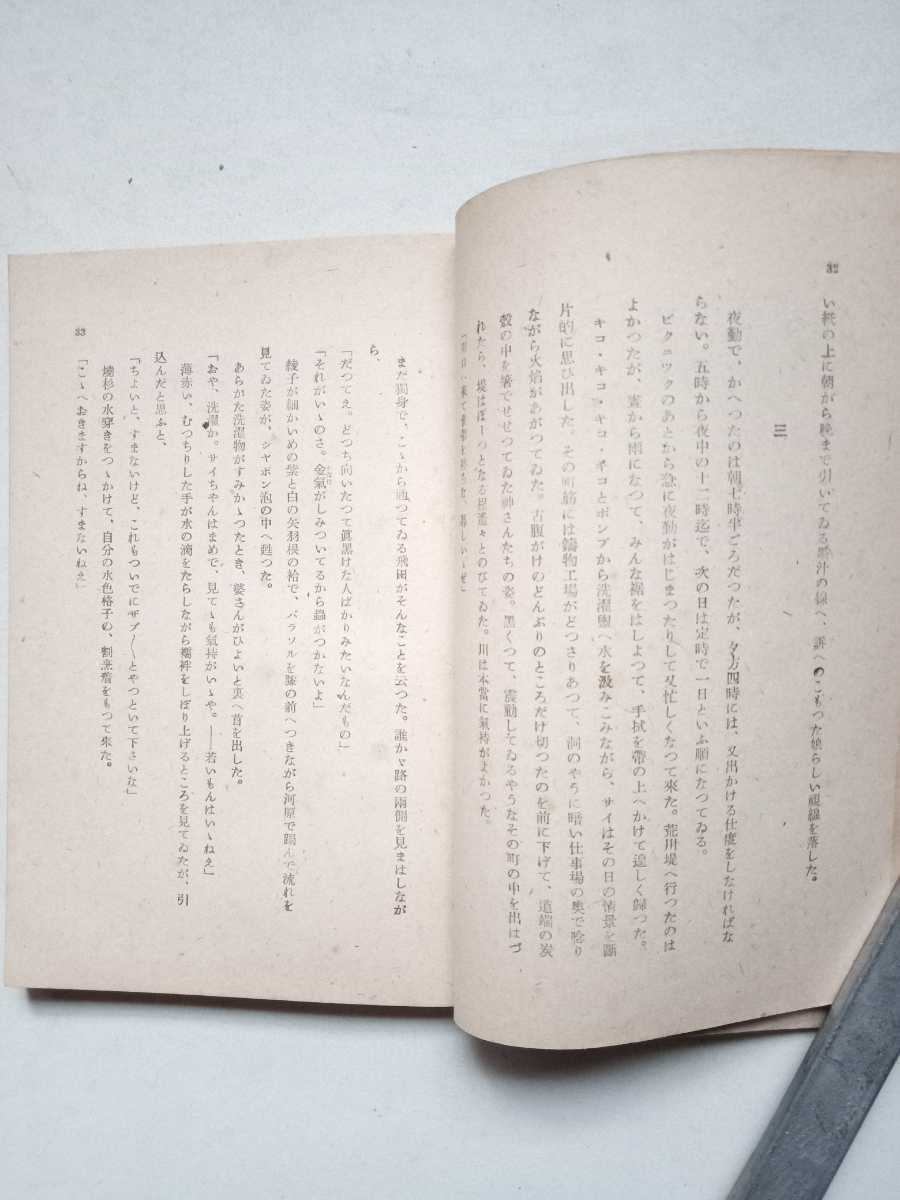 32
い紙の上に朝から晩まで引いてゐる
の線へ、訴へのこもつた娘らしい視線を落した。
三
夜勤で、かへつたのは朝七時半ごろだつたが、夕方四時には、又出かける仕度をしなければな
らない。五時から夜中の十二時迄で、次の日は定時で一日といふ順になつてゐる。
ピクニックのあとから急に夜勤がはじまつたりして又忙しくなつて来た。荒川堤へ行つたのは
よかつたが、
から雨になつて、みんな裾をはしよつて、手拭を帶の上へかけて遑しく歸つた。
キコ・キコ・キコ・キコとポンプから洗濯盥へ水を汲みこみながら、サイはその日の情景を斷
片的に思ひ出した。その町筋には鑄物工場がどつさりあつて、洞のやうに暗い仕事場の奥で唸り
ながら火焰があがつてゐた。古腹がけのどんぶりのところだけ切つたのを前に下げて、道端の炭
殼の中を箸でせせつてゐた神さんたちの姿。黒くつて、震動してゐるやうなその町の中を出はづ
れたら、堤はぼーつとなる程遙々とのびてゐた。川は本當に氣持がよかつた。
まだ獨身で、こゝから通つてゐる飛田がそんなことを云つた。誰かゞ路の兩側を見まはしなが
ら、
「だつてえ。どつち向いたつて眞黒けた人ばかりみたいなんだもの」
「それがいゝのさ。金氣がしみついてるから蟲がつかないよ」
綾子が細かいめの紫と白の矢羽根の袷で、パラソルを膝の前へつきながら河原で跼んで流れを
見てゐた姿が、シャボン泡の中へ甦つた。
あらかた洗濯物がすみかゝつたとき、婆さんがひよいと裏へ首を出した。
「おや、洗濯か。サイちやんはまめで、見てゝも氣持がいゝや。――若いもんはいゝねえ」
薄赤い、むつちりした手が水の滴をたらしながら襦袢をしぼり上げるところを見てゐたが、引
込んだと思ふと、
「ちよいと、すまないけど、これもついでにザブ〳〵とやつといて下さいな」
燒杉の水穿きをつゝかけて、自分の水色格子の、割烹着をもつて來た。
「こゝへおきますからね、すまないねえ」
33